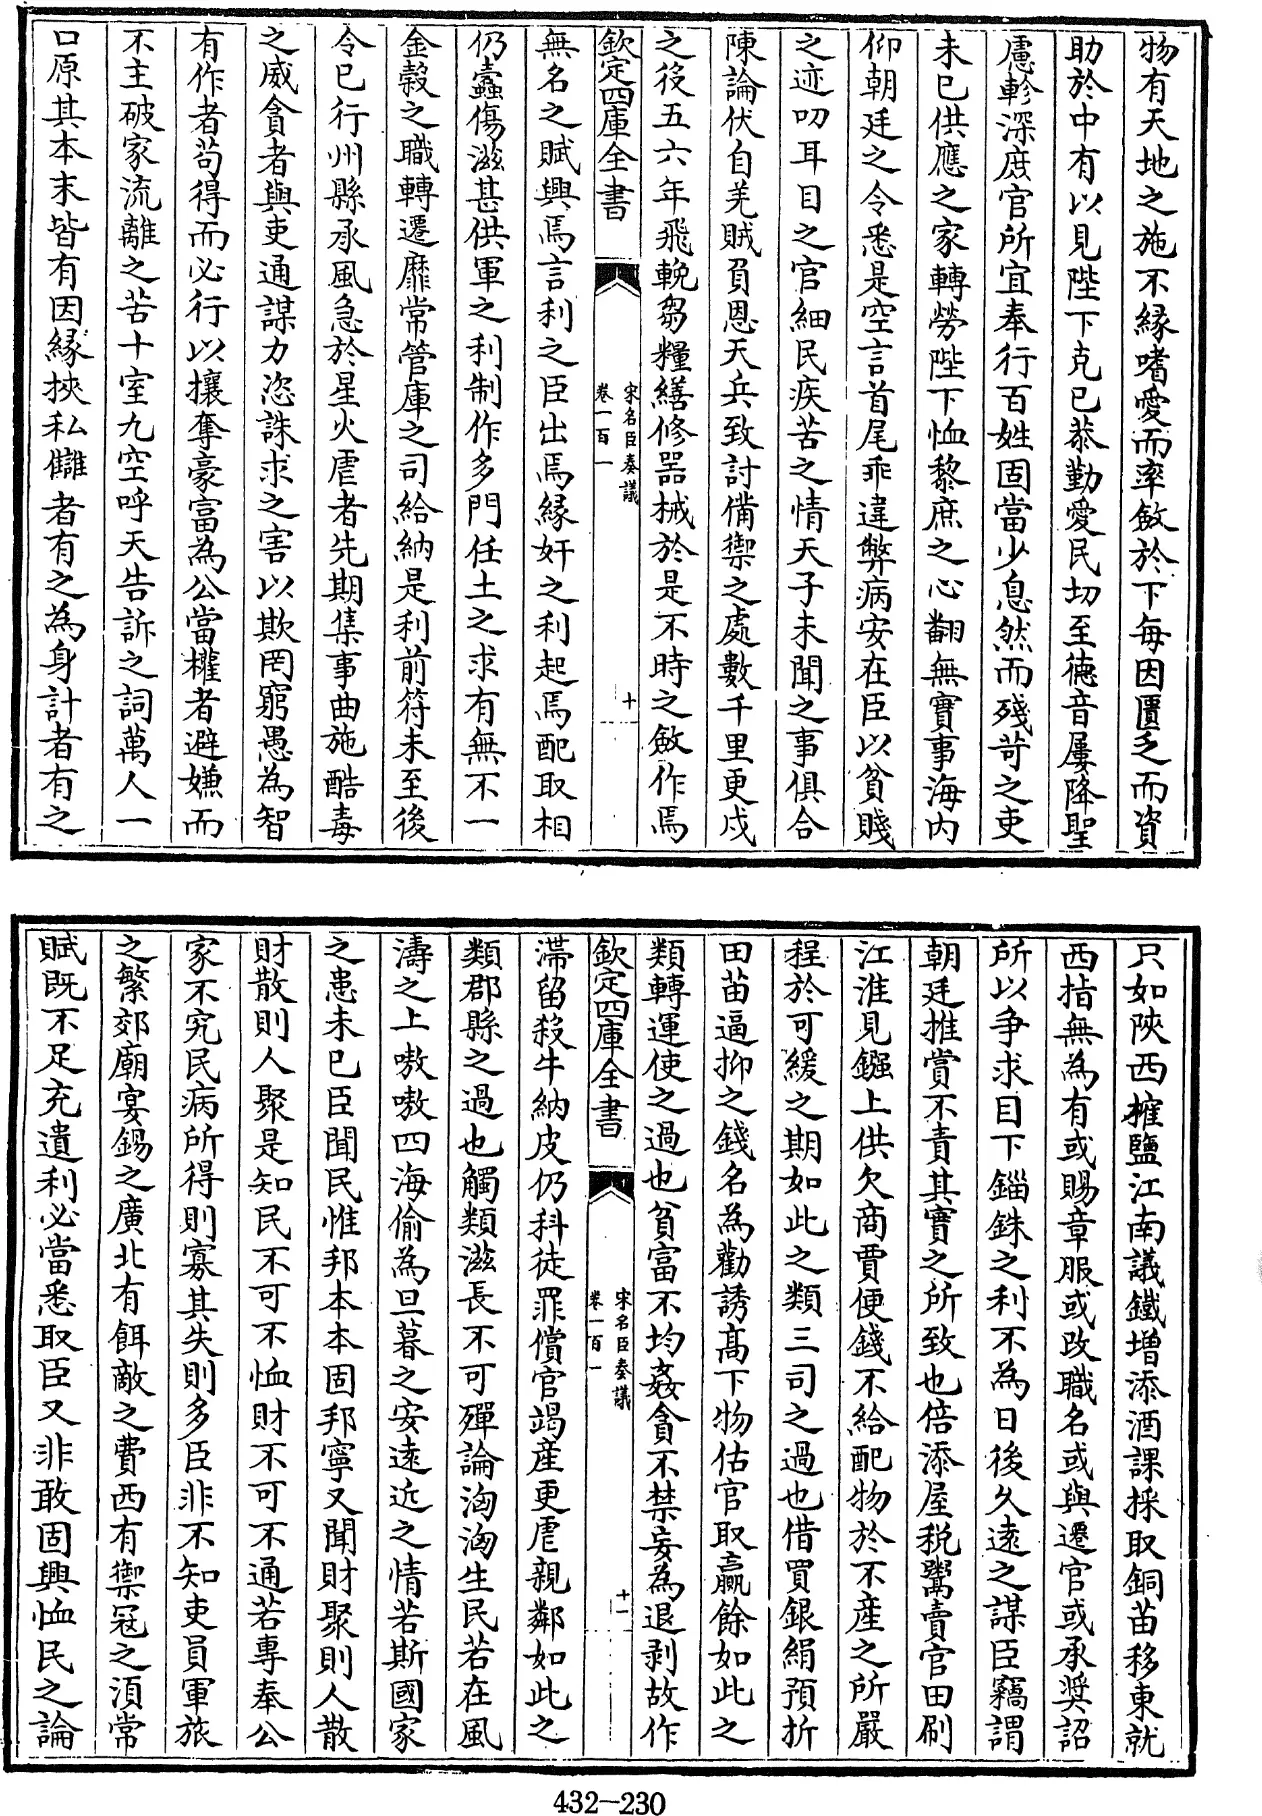 物有天地之施不緣嗜愛而率斂於下每因匱乏而資
助於中有以見陛下克已恭勤愛民切至德音屢降聖
慮軫深庶官所宜奉行百姓固當少息然而殘苛之吏
未已供應之家轉勞陛下恤黎庶之心翻無實事海内
仰朝廷之令悉是空言首尾乖違弊病安在臣以貧賤
之迹叨耳目之官細民疾苦之情天子未聞之事俱合
陳論伏自羌賊負恩天兵致討備禦之處數千里更戍
之後五六年飛輓芻糧繕修器械於是不時之斂作焉
欽定四庫全書
宋名臣奏議
卷一百一
十
無名之賦興焉言利之臣出焉緣奸之利起焉配取相
仍蠧傷滋甚供軍之利制作多門任土之求有無不一
金穀之職轉遷靡常管庫之司給納是利前符未至後
令已行州縣承風急於星火虐者先期集事曲施酷毒
之威貪者與吏通謀力恣誅求之害以欺罔窮愚為智
有作者苟得而必行以攘奪豪富為公當權者避嫌而
不主破家流離之苦十室九空呼天告訴之詞萬人一
口原其本末皆有因緣挾私讎者有之為身計者有之
只如陜西榷鹽江南議鐵增添酒課採取銅苗移東就
西指無為有或賜章服或改職名或與遷官或承奨詔
所以爭求目下錙銖之利不為日後久遠之謀臣竊謂
朝廷推賞不責其實之所致也倍添屋税鬻賣官田刷
江淮見鏹上供欠商賈便錢不給配物於不產之所嚴
程於可緩之期如此之類三司之過也借買銀絹預折
田苗逼抑之錢名為勸誘高下物估官取贏餘如此之
類轉運使之過也貧富不均姦貪不禁妄為退剥故作
欽定四庫全書
宋名臣奏議
卷一百一
十一
滯留殺牛納皮仍科徒罪償官竭產更虐親鄰如此之
類郡縣之過也觸類滋長不可殫論洶洶生民若在風
濤之上嗷嗷四海偷為旦暮之安遠近之情若斯國家
之患未已臣聞民惟邦本本固邦寧又聞財聚則人散
財散則人聚是知民不可不恤財不可不通若專奉公
家不究民病所得則寡其失則多臣非不知吏員軍旅
之繁郊廟宴錫之廣北有餌敵之費西有禦冦之湏常
賦既不足充遺利必當悉取臣又非敢固興恤民之論
432-230